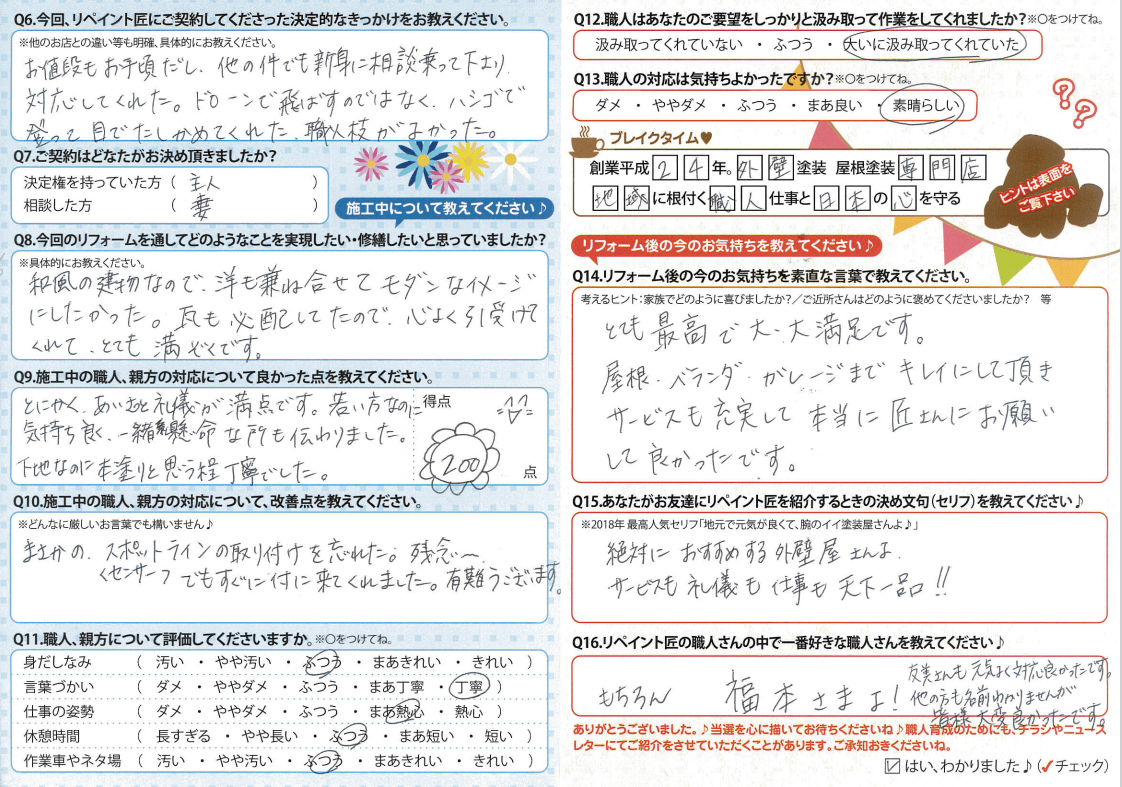 Q6.今回、リペイント匠にご契約してくださった決定的なきっかけをお教えください。
※他のお店との違い等も明確、具体的にお教えください。
お値段もお手頃だし、他の件でも親身に相談乗って下さり
対応してくれた。ドローンで飛ばすのではなく、ハシゴで
登って目でたしかめてくれた、職人技がよかった。
Q7.ご契約はどなたがお決め頂きましたか?
決定権を持っていた方 ( 主人 )
相談した方 ( 妻 )
施工中について教えてください♪
Q8.今回のリフォームを通してどのようなことを実現したい・修繕したいと思っていましたか?
※具体的にお教えください。
和風の建物なので、洋も兼ね合せてモダンなイメージ
にしたかった。瓦も心配してたので、心よく引受けて
くれて、とても満ぞくです。
Q9.施工中の職人、親方の対応について良かった点を教えてください。
とにかく、あいさつと礼儀が満点です。若い方なのに
気持ち良く、一緒懸命な所も伝わりました。
下地なのに本塗りと思う程丁寧でした。
得点
200 点
Q10.施工中の職人、親方の対応について、改善点を教えてください。
※どんなに厳しいお言葉でも構いません♪
まさかの、スポットラインの取り付けを忘れた。残念〜
くセンサーフ でもすぐに付に来てくれました。有難うございます。
Q11.職人、親方について評価してくださいますか。※○をつけてね。
身だしなみ ( 汚い ・ やや汚い ・ ふつう ・ まあきれい ・ きれい )
言葉づかい ( ダメ ・ ややダメ ・ ふつう ・ まあ丁寧 ・ 丁寧 )
仕事の姿勢 ( ダメ ・ ややダメ ・ ふつう ・ まあ熱心 ・ 熱心 )
休憩時間 ( 長すぎる ・ やや長い ・ ふつう ・ まあ短い ・ 短い )
作業車やネタ場 ( 汚い ・ やや汚い ・ ふつう ・ まあきれい ・ きれい )
Q12.職人はあなたのご要望をしっかりと汲み取って作業をしてくれましたか?※○をつけてね。
汲み取ってくれていない ・ ふつう ・ 大いに汲み取ってくれていた
Q13.職人の対応は気持ちよかったですか?※○をつけてね。
ダメ ・ ややダメ ・ ふつう ・ まあ良い ・ 素晴らしい
ブレイクタイム♥
創業平成24年。外壁塗装 屋根塗装専門店
地域に根付く職人仕事と日本の心を守る
ヒントは表面を
ご覧下さい
リフォーム後の今のお気持ちを教えてください♪
Q14.リフォーム後の今のお気持ちを素直な言葉で教えてください。
考えるヒント:家族でどのように喜びましたか?/ご近所さんはどのように褒めてくださいましたか? 等
とても最高で大・大満足です。
屋根・ベランダ・ガレージまでキレイにして頂き
サービスも充実して本当に匠さんにお願い
して良かったです。
Q15.あなたがお友達にリペイント匠を紹介するときの決め文句(セリフ)を教えてください♪
※2018年 最高人気セリフ「地元で元気が良くて、腕のイイ塗装屋さんよ♪」
絶対におすすめする外壁屋さんよ、
サービスも礼儀も仕事も天下一品!!
Q16.リペイント匠の職人さんの中で一番好きな職人さんを教えてください♪
もちろん 福本さまよ!
友美さんも元気よく対応良かったです。
他の方も名前わかりませんが
皆様大変良かったです。
ありがとうございました。♪当選を心に描いてお待ちくださいね♪職人育成のためにも、チラシやニュース
レターにてご紹介をさせていただくことがあります。ご承知おきくださいね。
☑はい、わかりました♪(✓チェック)